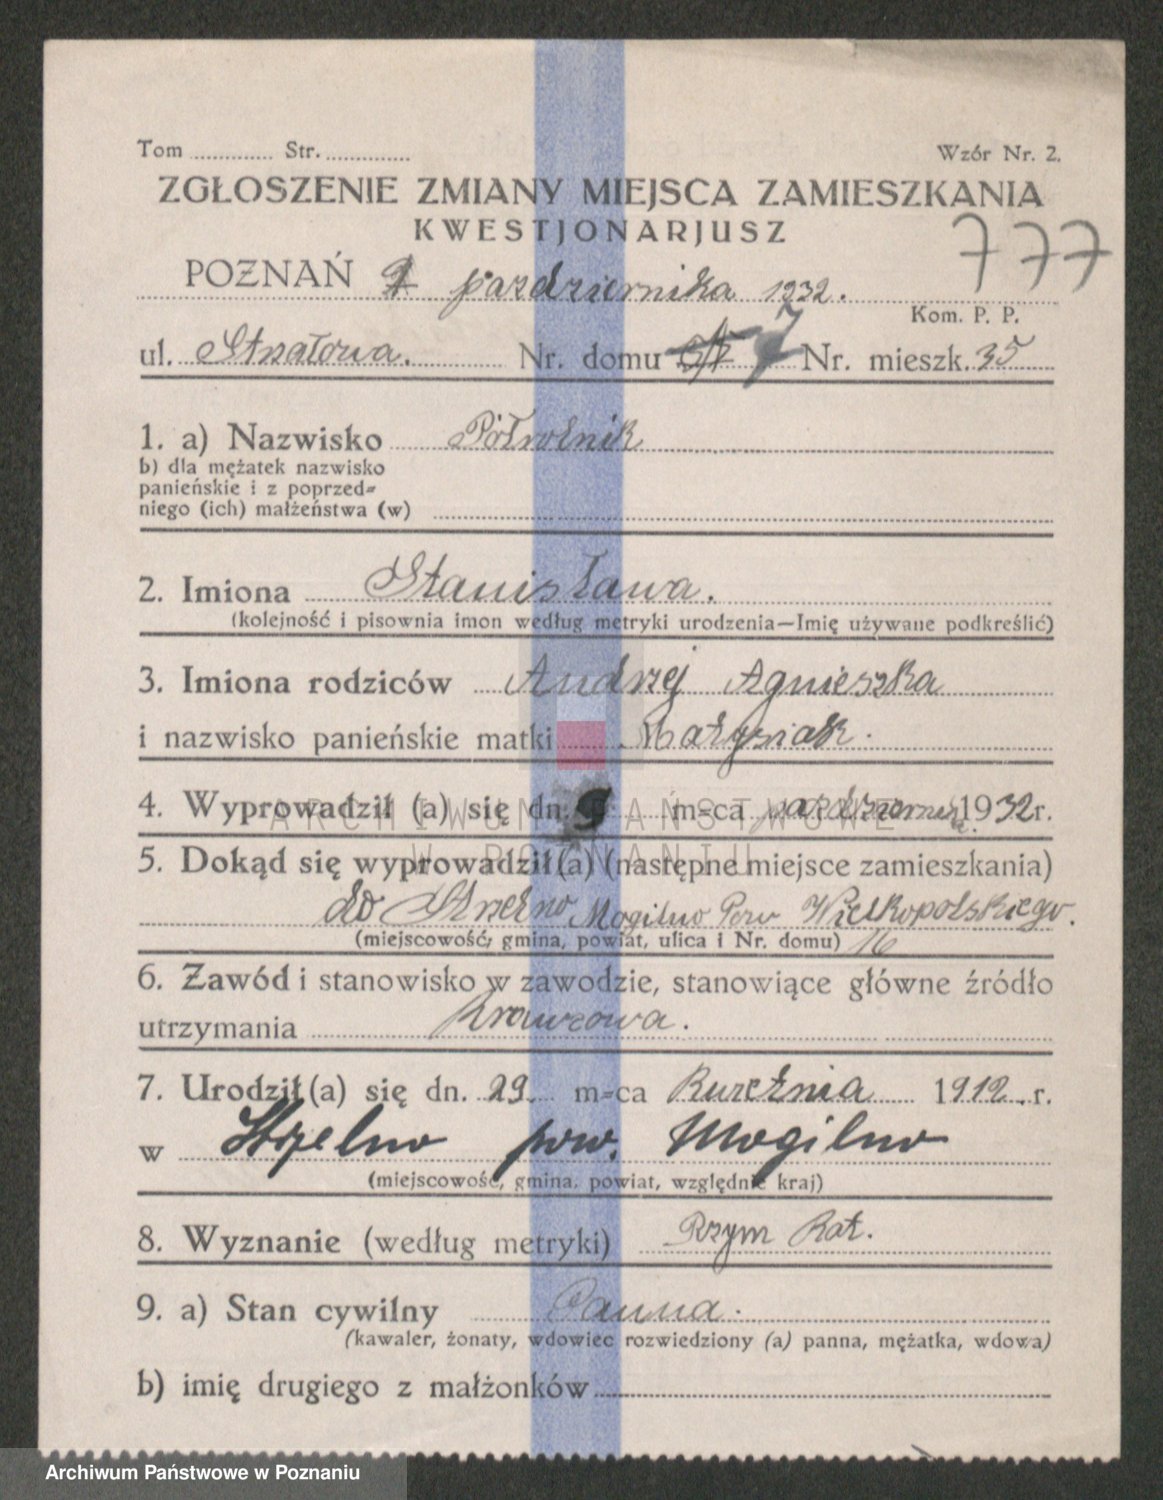 Tom ............ Str. ............ Wzór Nr. 2.
ZGŁOSZENIE ZMIANY MIEJSCA ZAMIESZKANIA
KWESTJONARJUSZ
777
POZNAŃ października 1932.
Kom. P. P.
ul. Strzałowa. Nr. domu 7 Nr. mieszk. 35
1. a) Nazwisko Półrolnik
b) dla mężatek nazwisko
panieńskie i z poprzed=
niego (ich) małżeństwa (w)
2. Imiona Stanisława.
(kolejność i pisownia imon według metryki urodzenia—Imię używane podkreślić)
3. Imiona rodziców Andrzej Agnieszka
i nazwisko panieńskie matki
4. Wyprowadził (a) się dn. 9 m=ca października 1932 r.
ARCHIWUM PAŃSTWOWE
W POZNANIU
5. Dokąd się wyprowadził(a) (następne miejsce zamieszkania)
do Strzelno Mogilno Pow Wielkopolskiego.
(miejscowość, gmina, powiat, ulica i Nr. domu) 16
6. Zawód i stanowisko w zawodzie, stanowiące główne źródło
utrzymania Krawcowa.
7. Urodził(a) się dn. 29 m=ca 1912. r.
w Strzelno pow. Mogilno
(miejscowość, gmina, powiat, względnie kraj)
8. Wyznanie (według metryki) Rzym Kat.
9. a) Stan cywilny Panna.
(kawaler, żonaty, wdowiec rozwiedziony (a) panna, mężatka, wdowa)
b) imię drugiego z małżonków
Archiwum Państwowe w Poznaniu